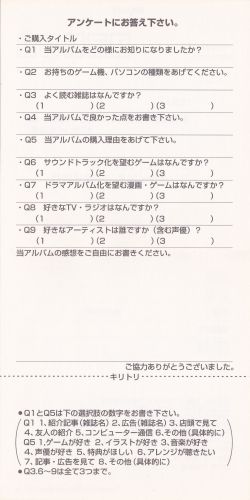 アンケートにお答え下さい。
・ご購入タイトル
・Q1 当アルバムをどの様にお知りになりましたか?
・Q2 お持ちのゲーム機、パソコンの種類をあげてください。
・Q3 よく読む雑誌はなんですか?
(1 )(2 )(3 )
・Q4 当アルバムで良かった点をお書き下さい。
・Q5 当アルバムの購入理由をあげて下さい。
・Q6 サウンドトラック化を望むゲームはなんですか?
(1 )(2 )(3 )
・Q7 ドラマアルバム化を望む漫画・ゲームはなんですか?
(1 )(2 )(3 )
・Q8 好きなTV・ラジオはなんですか?
(1 )(2 )(3 )
・Q9 好きなアーティストは誰ですか(含む声優)?
(1 )(2 )(3 )
当アルバムの感想をご自由にお書きください。
ご協力ありがとうございました。
キリトリ
●Q1とQ5は下の選択肢の数字をお書き下さい。
Q1 1、紹介記事(雑誌名) 2、広告(雑誌名) 3、店頭で見て
4、友人の紹介 5、コンピューター通信 6、その他(具体的に)
Q5 1、ゲームが好き 2、イラストが好き 3、音楽が好き
4、声優が好き 5、特典がほしい 6、アレンジが聴きたい
7、記事・広告を見て 8、その他(具体的に)
●Q3.6〜9は全て3つまで。